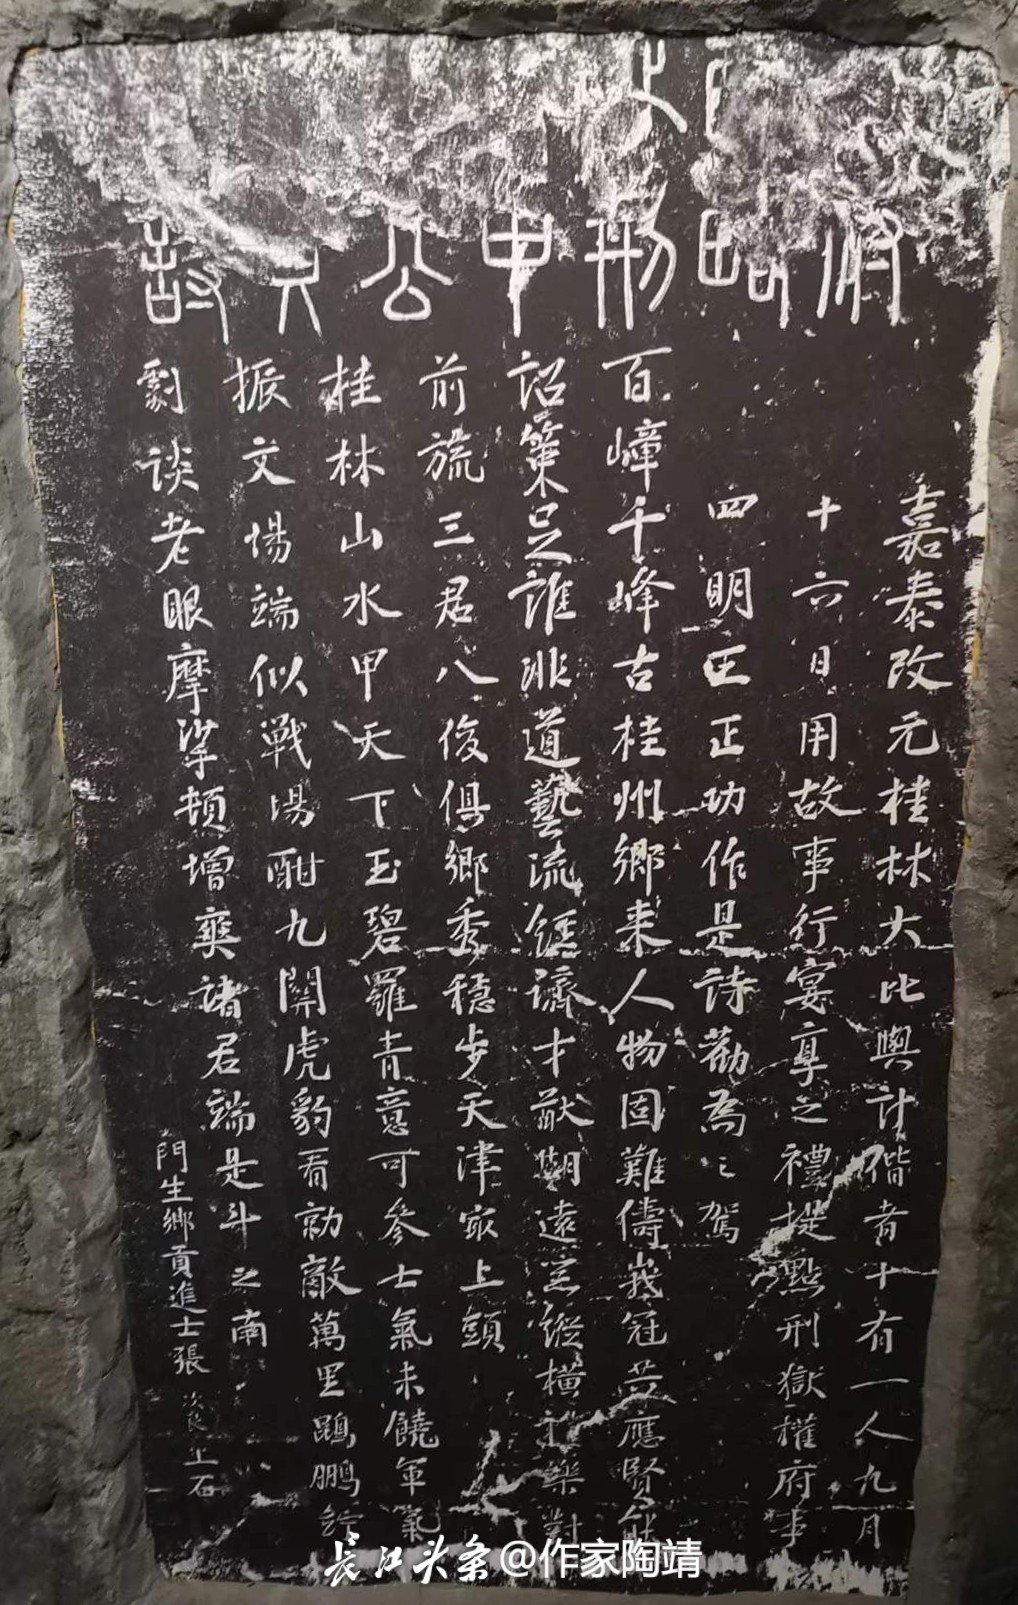 嘉泰改元桂林大比與計偕者十有一人九月
十六日用故事行宴享之禮提點刑獄權府事
四明王正功作是詩勸為之駕
百嶂千峰古桂州鄉來人物固難儔峩冠共應賢能
詔策足誰非道藝流經濟才猷期遠業縱橫禮樂對
前旒三君八俊俱鄉秀穩步天津最上頭
桂林山水甲天下玉碧羅青意可參士氣未饒軍氣
振文場端似戰場酣九關虎豹看勍敵萬里鵾鵬佇
劇談老眼摩挲頓增爽諸君端是斗之南
門生鄉貢進士張次良上石
长江头条@作家陶靖